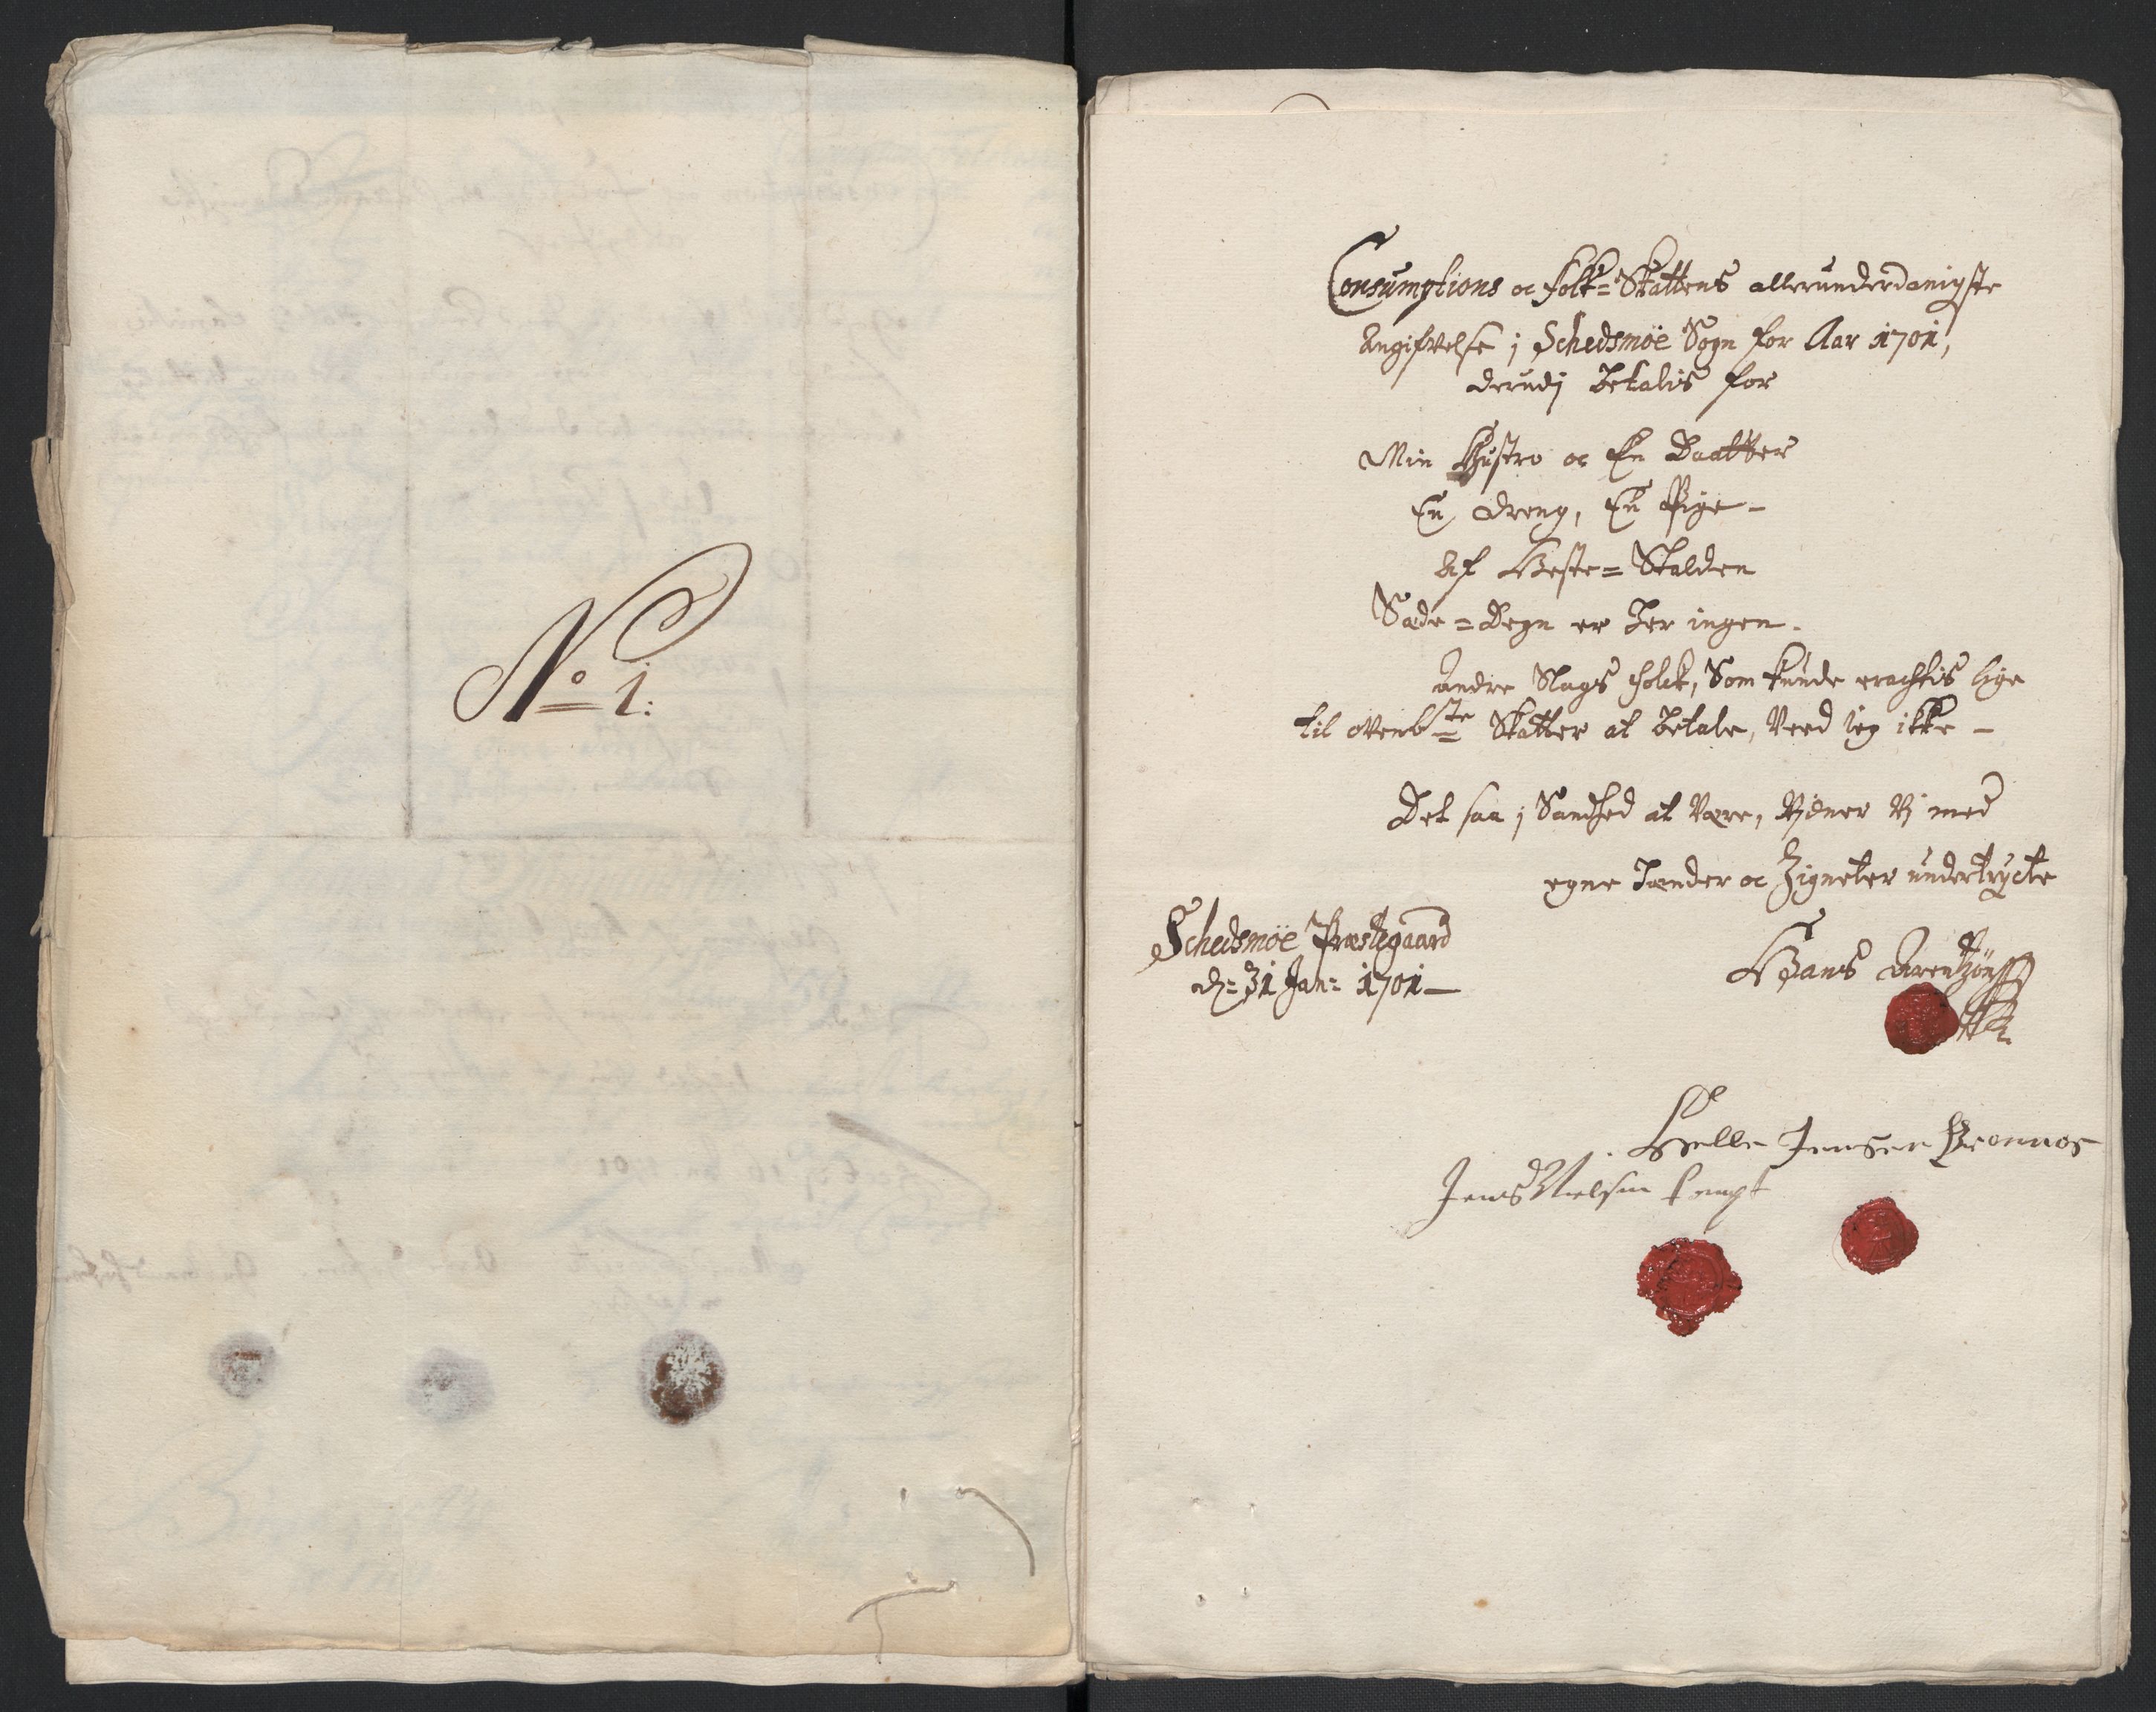 No 1:
Consumptions oc folk=Skattens allerunderdanigste
Angifvelse j Schedsmöe Sogn for Aar 1701,
derudj betalis for
Min Hustro oc En Daatter
En dreng, En Pige -
Af Heste=Stalden
Sæde=Degn er her ingen.
Andre Slags folck, Som kunde erachtis lige
til ovenbte Skatter at betale, Veed ieg ikke -
Det saa j Sandhed at være, Vidner Vj med
egne hænder oc Zigneter undertrycte
Schedsmöe Præstegaard
dn: 31 Jan: 1701 -
Hans Arentzön
Helle Jensen
Jens Nielsen